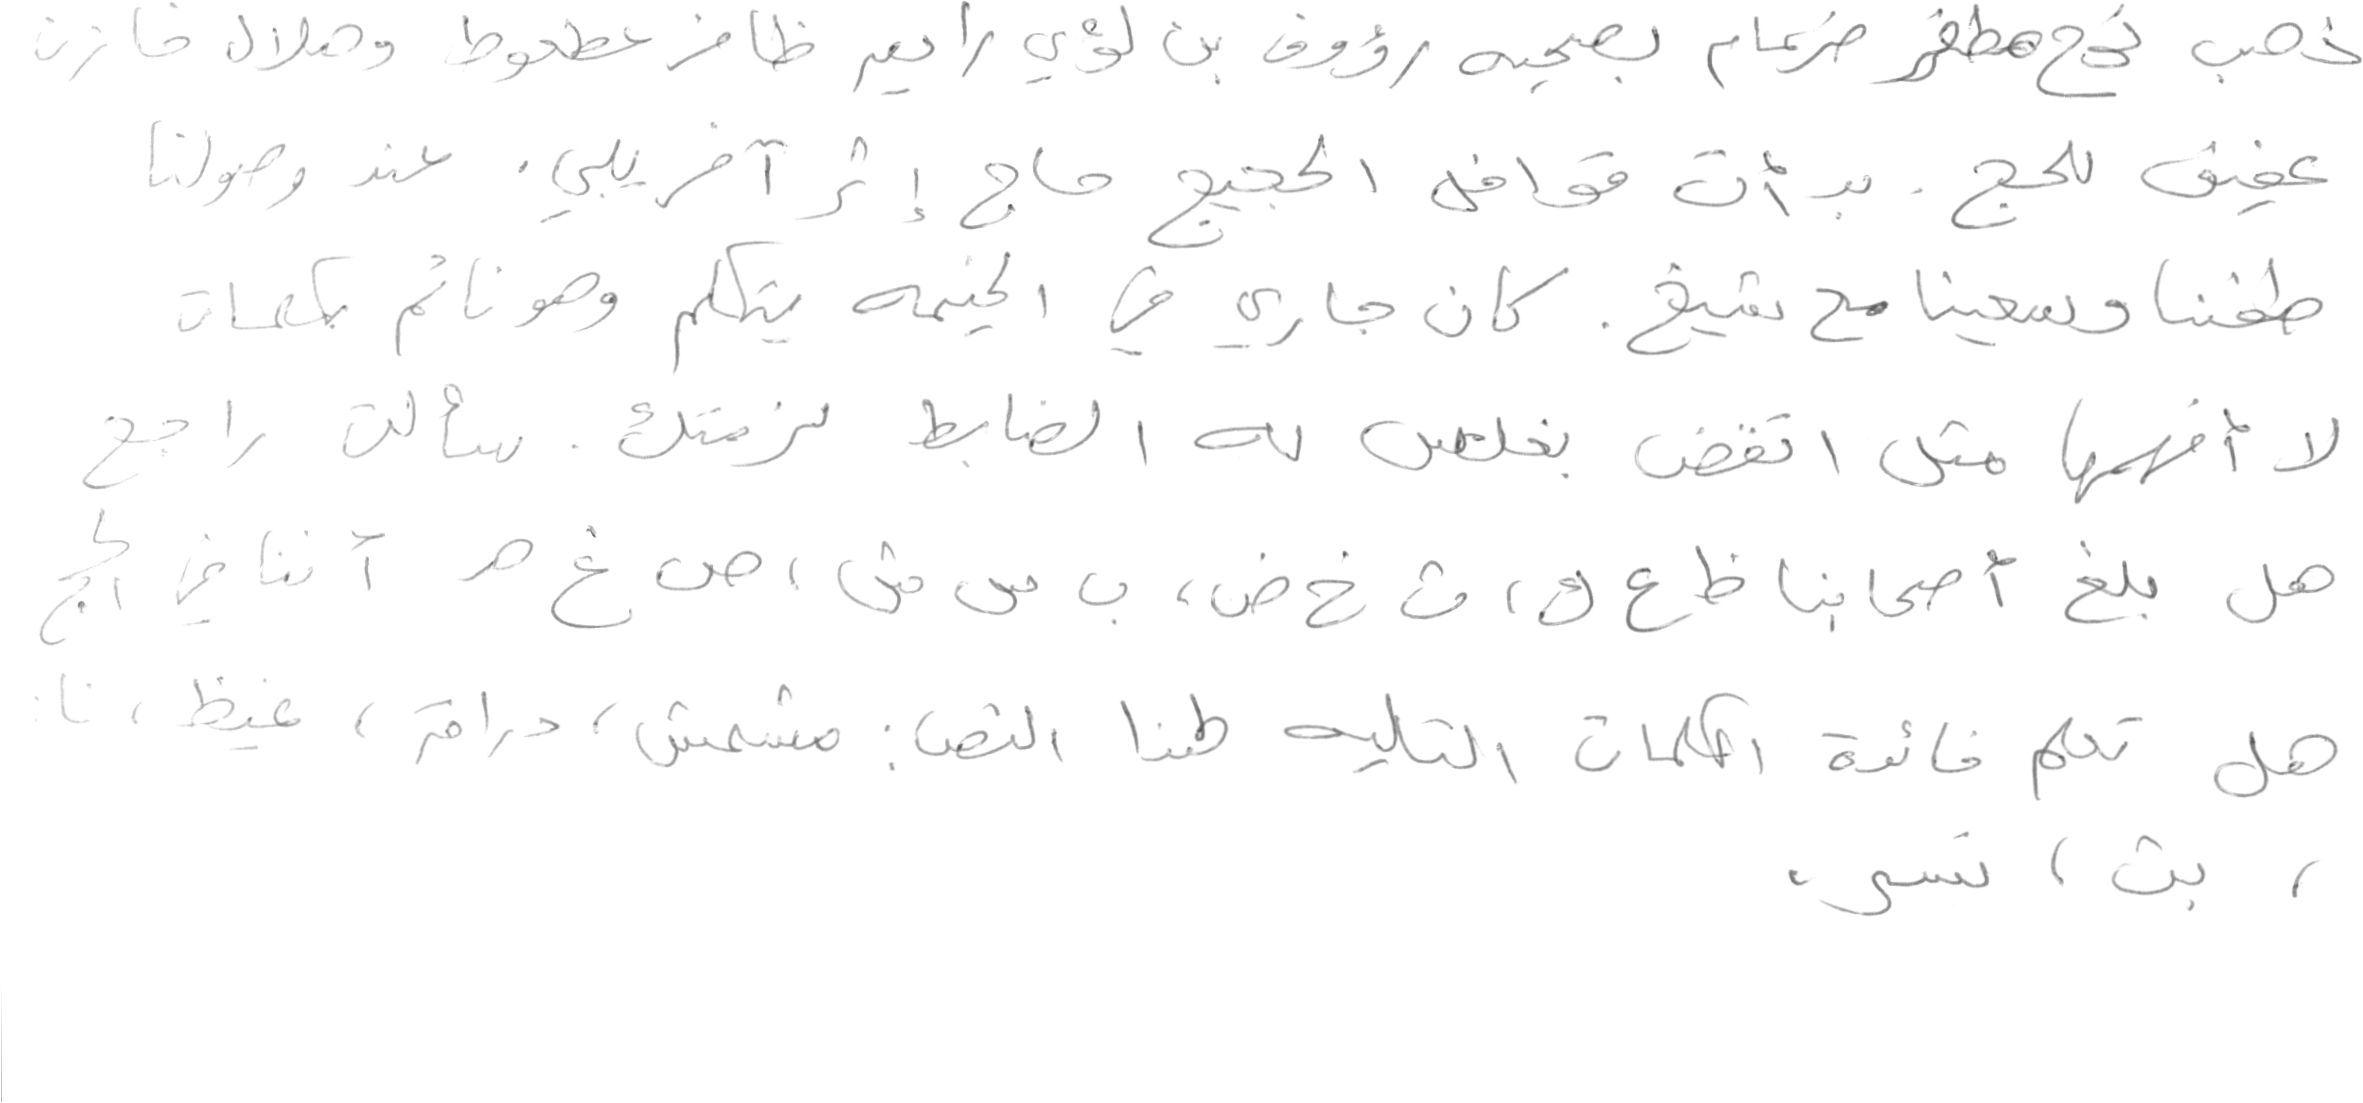 ذهب نوح مظفر ضرغام بصحبه رؤوف بن لؤي راجي ظافر عطعوط وهلال خازن
عفيف للحج . بدأت قوافل الحجيج حاج إثر آخر يلبي . عند وصولنا
طفنا وسعينا مع نفيغ . كان جاري في الخيمه يتكلم وهو نائم بكلمات
لا أفهمها مثل انقض بغلس له الضابط لزمتك . سألت راجح
هل بلغ أصحابنا ظ ع ك ، ث خ ض ، ب س ش ، ص غ ه آننا في الحج
هل تعلم فائدة الكلمات التاليه لهذا النص : مشمش ، درامة ، غيظ ، نا:
، بث ، نسي .